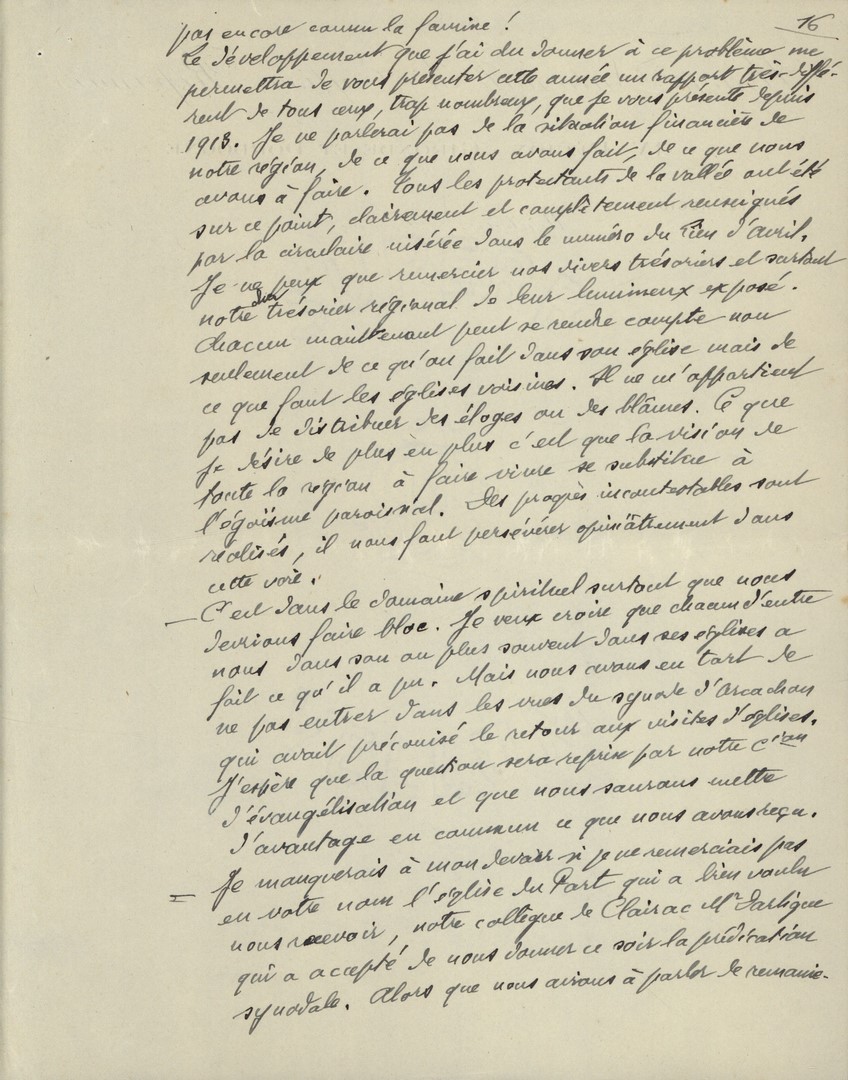 16
pas encore connu la famine !
Le développement que j'ai du donner à ce problème me
permettra de vous présenter cette année un rapport très-diffé-
rent de tous ceux, trop nombreux, que je vous présente depuis
1913. Je ne parlerai pas de la situation financière de
notre région, de ce que nous avons fait, de ce que nous
avons à faire. Tous les protestants de la vallée ont été
sur ce point, clairement et complètement renseignés
par la circulaire insérée dans le numéro du Lien d'avril.
Je ne peux que remercier nos divers trésoriers et surtout
notre trésorier régional de leur lumineux exposé.
Chacun maintenant peut se rendre compte non
seulement de ce qu'on fait dans son église mais de
ce que font les églises voisines. Il ne m'appartient
pas de distribuer des éloges ou des blâmes. Ce que
je désire de plus en plus c'est que la vision de
toute la région à faire vivre se substitue à
l'égoïsme paroissial. Des progrès incontestables sont
réalisés, il nous faut persévérer opiniâtrement dans
cette voie.
— C'est dans le domaine spirituel surtout que nous
devrions faire bloc. Je veux croire que chacun d'entre
nous dans son ou plus souvent dans ses églises a
fait ce qu'il a pu. Mais nous avons eu tort de
ne pas entrer dans les vues du synode d'Arcachon
qui avait préconisé le retour aux visites d'églises.
J'espère que la question sera reprise par notre Cion
d'évangélisation et que nous saurons mettre
d'avantage en commun ce que nous avons reçu.
= Je manquerais à mon devoir si je ne remerciais pas
en votre nom l'église du Port qui a bien voulu
nous recevoir, notre collègue de Clairac Mr Dartigue
qui a accepté de nous donner ce soir la prédication
synodale. Alors que nous avions à parler de remanie-